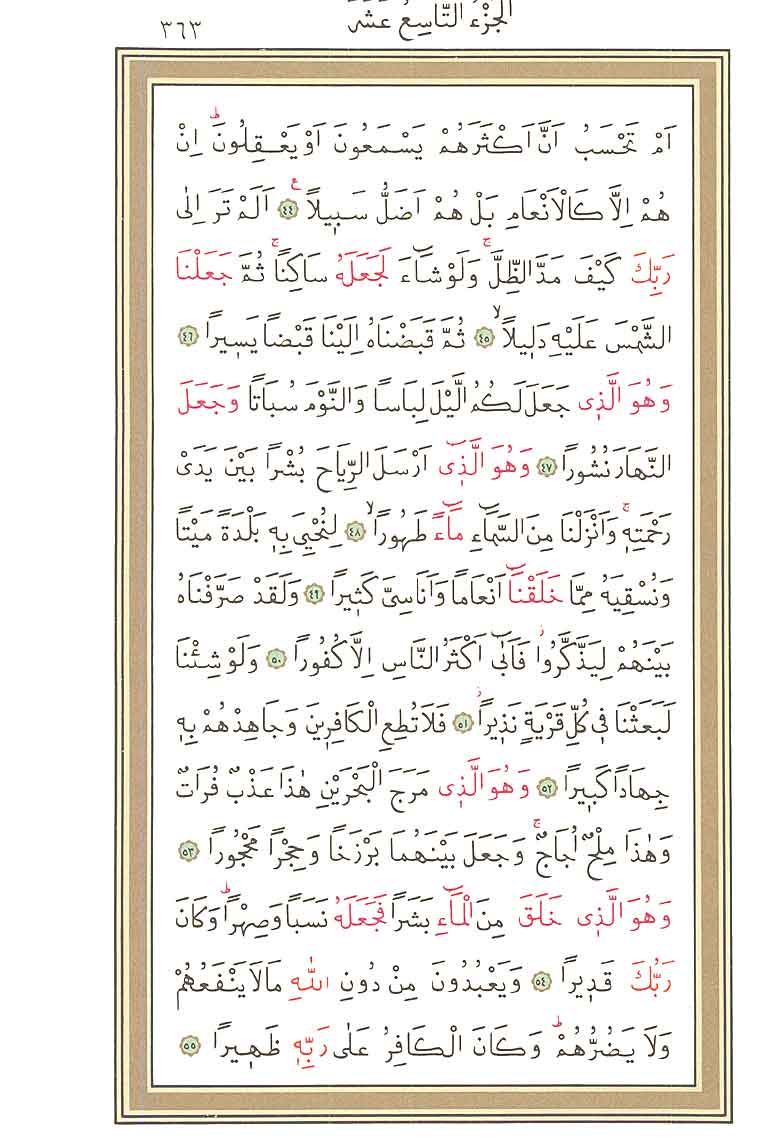 الجزء التاسع عشر
٣٦٣
اَمْ تَحْسَبُ اَنَّ اَكْثَرَهُمْ يَسْمَعُونَ اَوْ يَعْقِلُونَۜ اِنْ
هُمْ اِلَّا كَالْاَنْعَامِ بَلْ هُمْ اَضَلُّ سَب۪يلًا ﴿٤٤﴾ اَلَمْ تَرَ اِلٰى
رَبِّكَ كَيْفَ مَدَّ الظِّلَّۚ وَلَوْ شَٓاءَ لَجَعَلَهُ سَاكِنًاۚ ثُمَّ جَعَلْنَا
الشَّمْسَ عَلَيْهِ دَل۪يلًاۙ ﴿٤٥﴾ ثُمَّ قَبَضْنَاهُ اِلَيْنَا قَبْضًا يَس۪يرًا ﴿٤٦﴾
وَهُوَ الَّذ۪ى جَعَلَ لَكُمُ الَّيْلَ لِبَاسًا وَالنَّوْمَ سُبَاتًا وَجَعَلَ
النَّهَارَ نُشُورًا ﴿٤٧﴾ وَهُوَ الَّذ۪ٓى اَرْسَلَ الرِّيَاحَ بُشْرًا بَيْنَ يَدَىْ
رَحْمَتِه۪ۚ وَاَنْزَلْنَا مِنَ السَّمَٓاءِ مَٓاءً طَهُورًاۙ ﴿٤٨﴾ لِنُحْيِىَ بِه۪ بَلْدَةً مَيْتًا
وَنُسْقِيَهُ مِمَّا خَلَقْنَٓا اَنْعَامًا وَاَنَاسِىَّ كَث۪يرًا ﴿٤٩﴾ وَلَقَدْ صَرَّفْنَاهُ
بَيْنَهُمْ لِيَذَّكَّرُواۘ فَاَبٰٓى اَكْثَرُ النَّاسِ اِلَّا كُفُورًا ﴿٥٠﴾ وَلَوْ شِئْنَا
لَبَعَثْنَا ف۪ى كُلِّ قَرْيَةٍ نَذ۪يرًاۘ ﴿٥١﴾ فَلَا تُطِعِ الْكَافِر۪ينَ وَجَاهِدْهُمْ بِه۪
جِهَادًا كَب۪يرًا ﴿٥٢﴾ وَهُوَ الَّذ۪ى مَرَجَ الْبَحْرَيْنِ هٰذَا عَذْبٌ فُرَاتٌ
وَهٰذَا مِلْحٌ اُجَاجٌۚ وَجَعَلَ بَيْنَهُمَا بَرْزَخًا وَحِجْرًا مَحْجُورًا ﴿٥٣﴾
وَهُوَ الَّذ۪ى خَلَقَ مِنَ الْمَٓاءِ بَشَرًا فَجَعَلَهُ نَسَبًا وَصِهْرًاۜ وَكَانَ
رَبُّكَ قَد۪يرًا ﴿٥٤﴾ وَيَعْبُدُونَ مِنْ دُونِ اللّٰهِ مَا لَا يَنْفَعُهُمْ
وَلَا يَضُرُّهُمْۜ وَكَانَ الْكَافِرُ عَلٰى رَبِّه۪ ظَه۪يرًا ﴿٥٥﴾